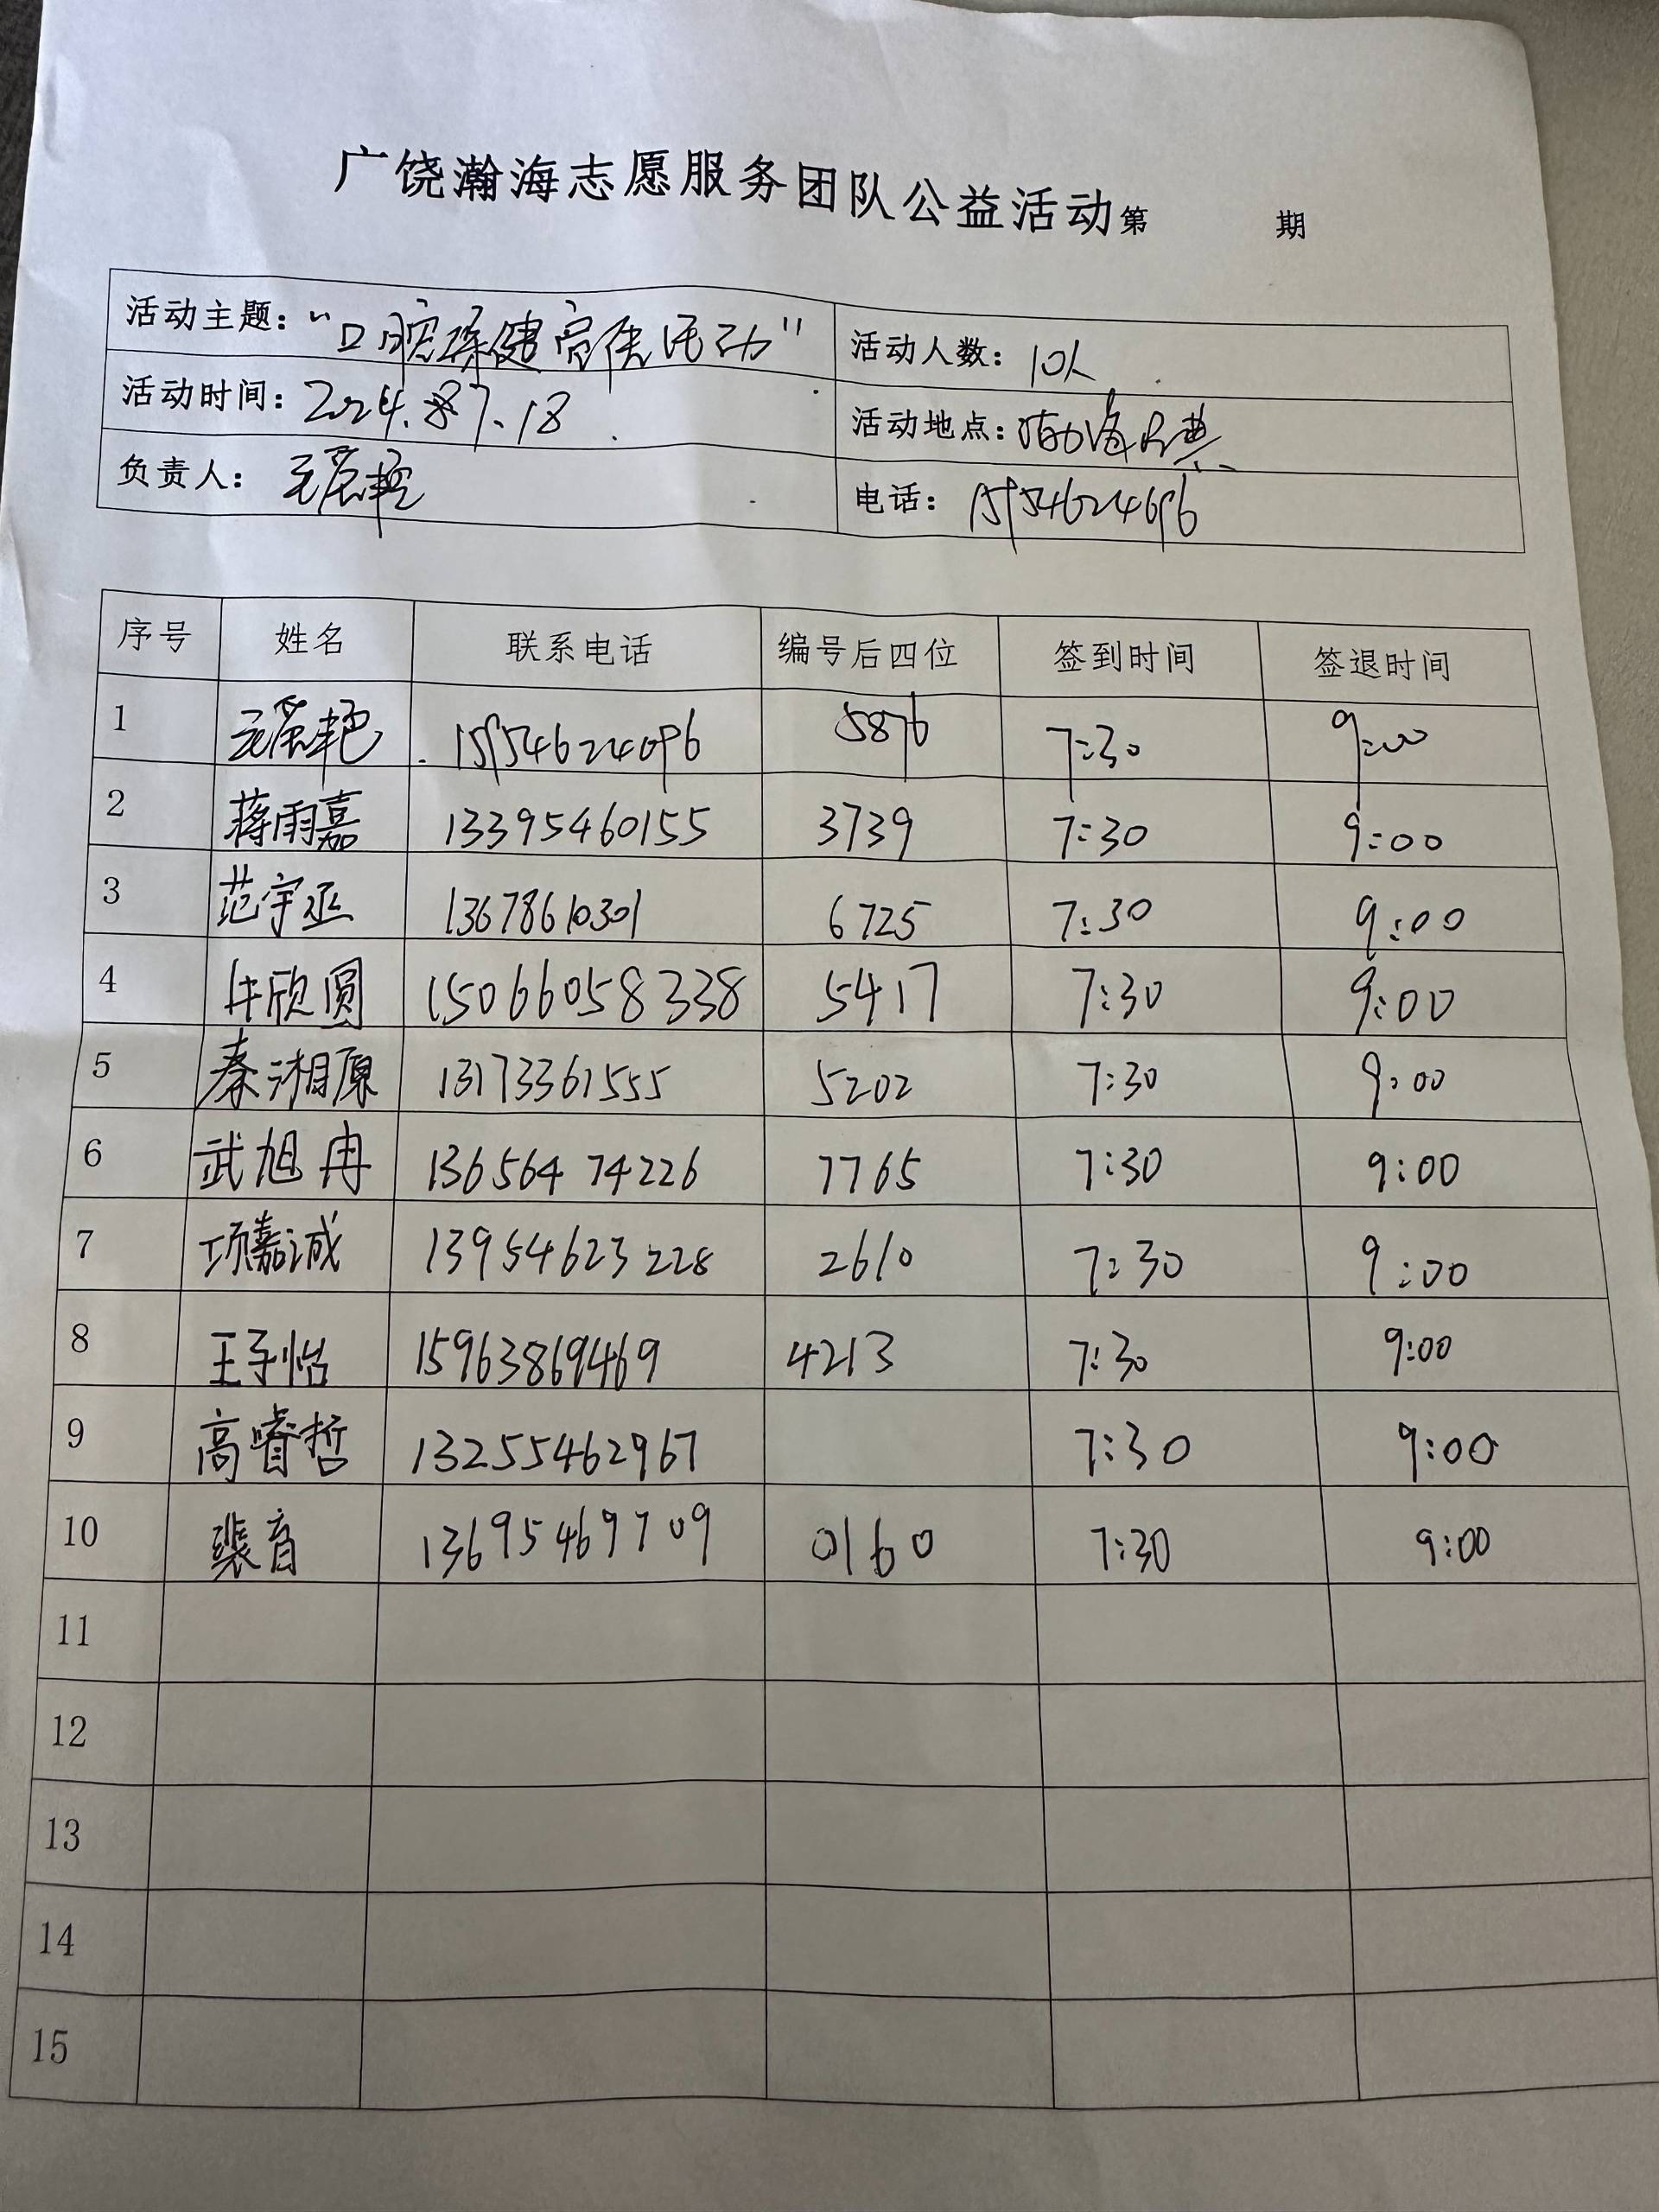 广饶瀚海志愿服务团队公益活动第 期
活动主题：“口腔保健宣传活动” 活动人数：10人
活动时间：2024.7.18 活动地点：
负责人： 电话：15954624696
序号 姓名 联系电话 编号后四位 签到时间 签退时间
1 5876 7:30 9:00
2 蒋雨嘉 13395460155 3739 7:30 9:00
3 范宇丞 13678610301 6725 7:30 9:00
4 牛欣圆 15066058338 5417 7:30 9:00
5 秦湘原 13173361555 5202 7:30 9:00
6 武旭冉 13656474226 7765 7:30 9:00
7 项嘉诚 13954623228 2610 7:30 9:00
8 王子怡 15963869469 4213 7:30 9:00
9 高睿哲 13255462967 7:30 9:00
10 13695469709 0160 7:30 9:00
11
12
13
14
15